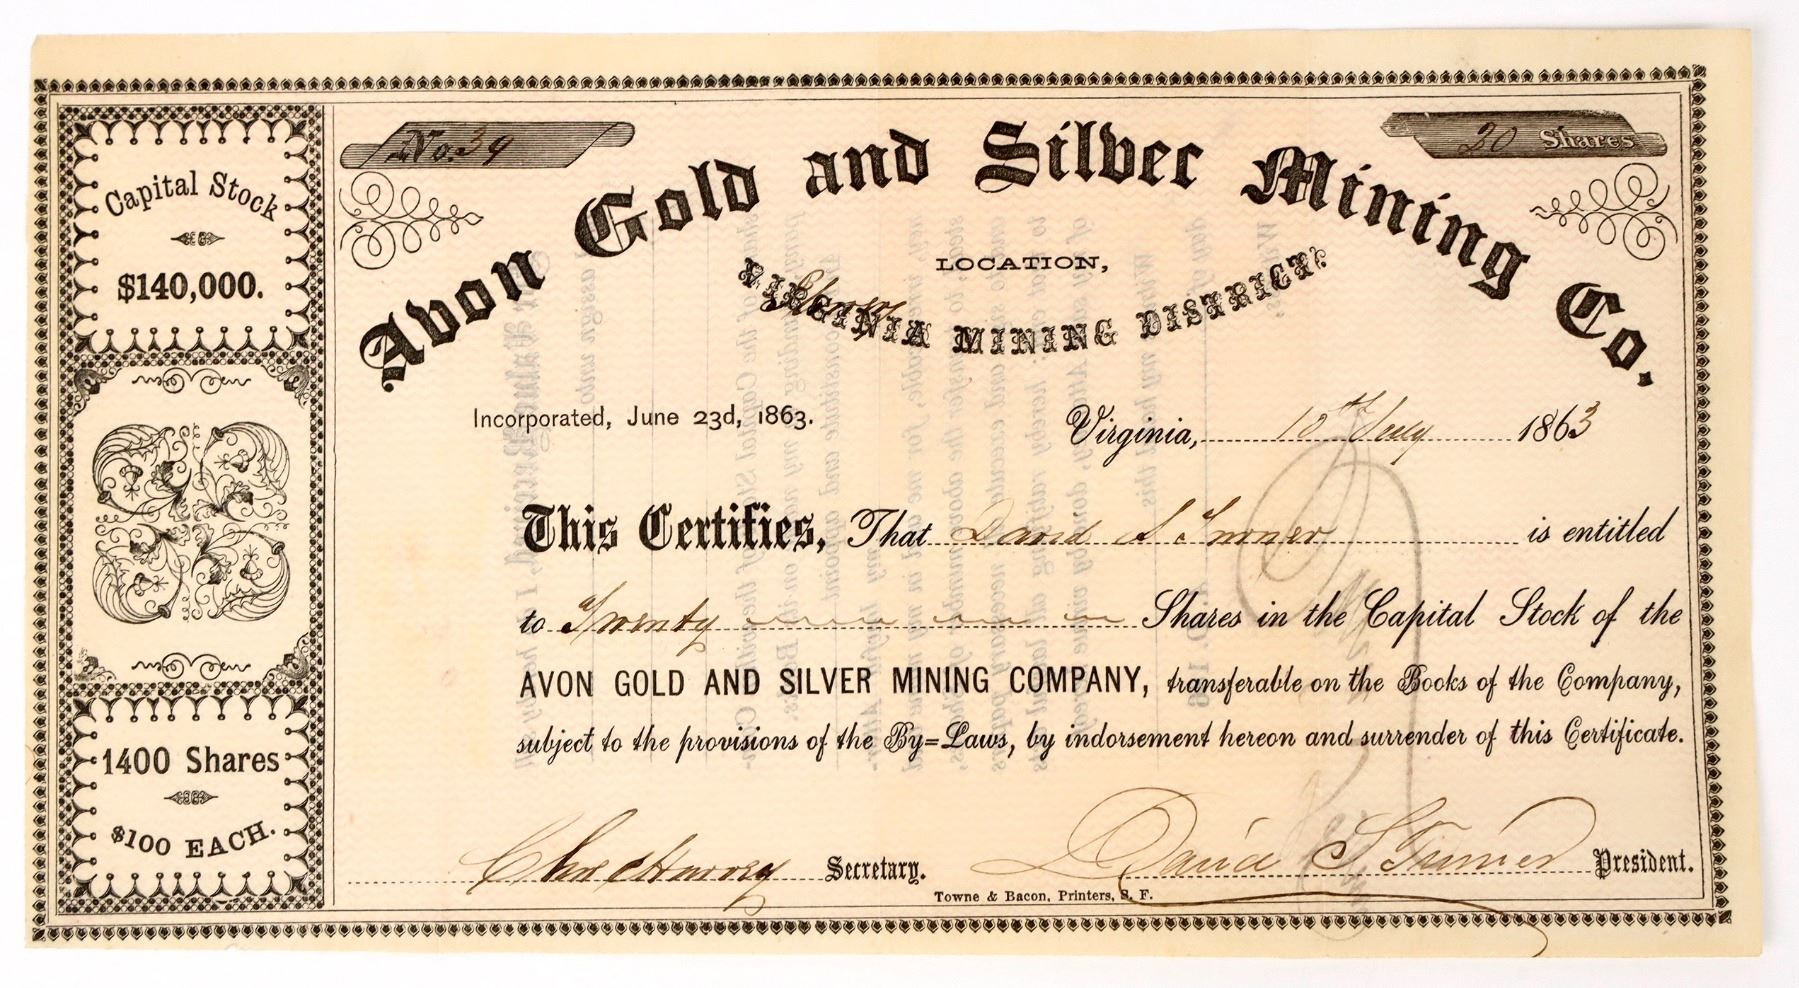 No. 39
20 Shares
Avon Gold and Silver Mining Co.
LOCATION,
VIRGINIA MINING DISTRICT.
Capital Stock
$140,000.
Incorporated, June 23d, 1863.
Virginia, 10th July 1863
This Certifies, That David S Turner is entitled
to Twenty Shares in the Capital Stock of the
AVON GOLD AND SILVER MINING COMPANY, transferable on the Books of the Company,
subject to the provisions of the By=Laws, by indorsement hereon and surrender of this Certificate.
1400 Shares
$100 EACH.
Secretary.
David S Turner President.
Towne & Bacon, Printers, S. F.